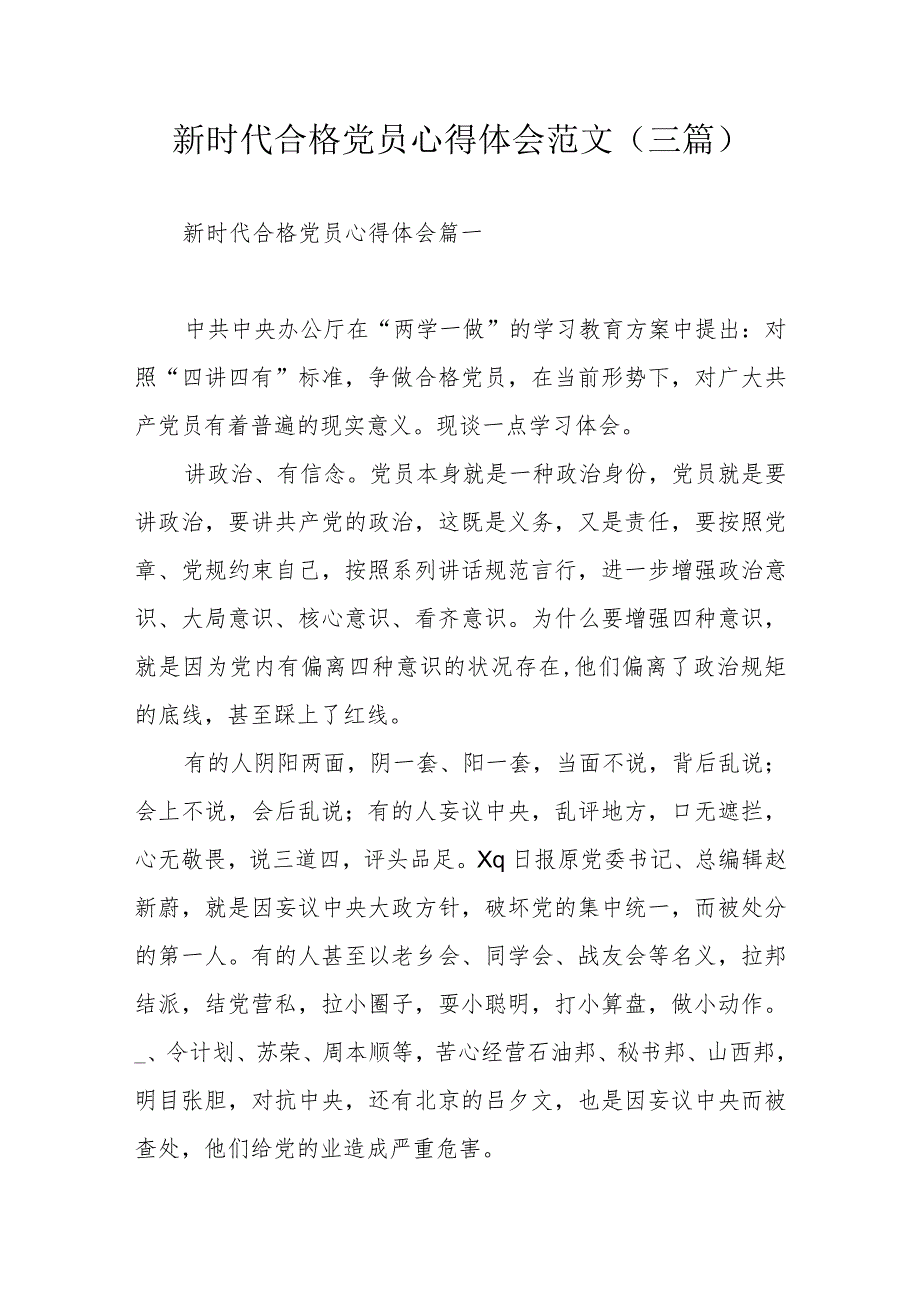 新时代合格党员心得体会范文（三篇）
新时代合格党员心得体会篇一
中共中央办公厅在“两学一做”的学习教育方案中提出：对
照“四讲四有”标准，争做合格党员，在当前形势下，对广大共
产党员有着普遍的现实意义。现谈一点学习体会。
讲政治、有信念。党员本身就是一种政治身份，党员就是要
讲政治，要讲共产党的政治，这既是义务，又是责任，要按照党
章、党规约束自己，按照系列讲话规范言行，进一步增强政治意
识、大局意识、核心意识、看齐意识。为什么要增强四种意识，
就是因为党内有偏离四种意识的状况存在,他们偏离了政治规矩
的底线，甚至踩上了红线。
有的人阴阳两面，阴一套、阳一套，当面不说，背后乱说；
会上不说，会后乱说；有的人妄议中央，乱评地方，口无遮拦，
心无敬畏，说三道四，评头品足。Xq日报原党委书记、总编辑赵
新蔚，就是因妄议中央大政方针，破坏党的集中统一，而被处分
的第一人。有的人甚至以老乡会、同学会、战友会等名义，拉邦
结派，结党营私，拉小圈子，耍小聪明，打小算盘，做小动作。
_、令计划、苏荣、周本顺等，苦心经营石油邦、秘书邦、山西邦，
明目张胆，对抗中央，还有北京的吕夕文，也是因妄议中央而被
查处，他们给党的业造成严重危害。